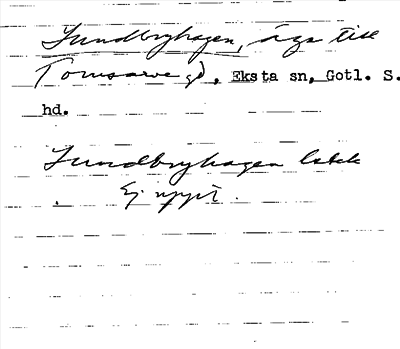 Sundbryhagen, äga till
Tomsarve gd, Eksta sn, Gotl. S.
hd.
Sundbryhagen
Ej uppt.